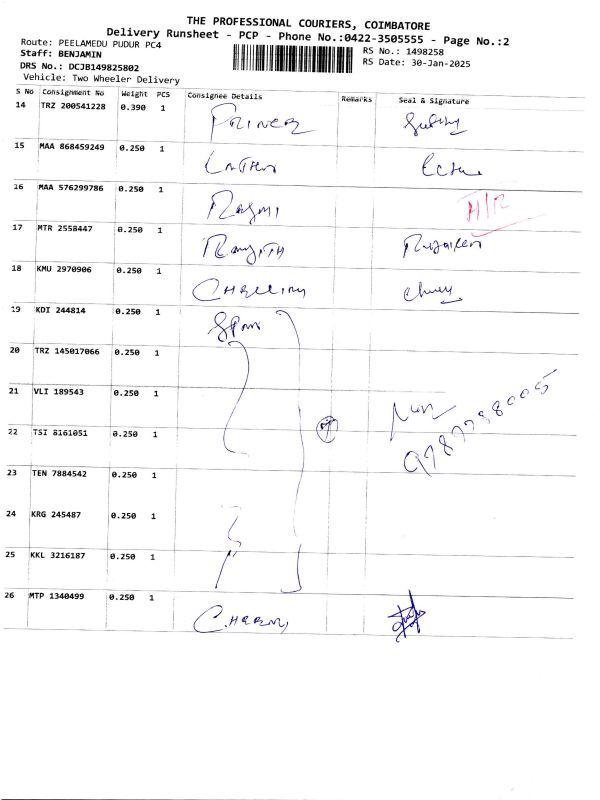 THE PROFESSIONAL COURIERS, COIMBATORE
Delivery Runsheet - PCP - Phone No.:0422-3505555 - Page No.:2
Route: PEELAMEDU PUDUR PC4
Staff: BENJAMIN
RS No.: 1498258
DRS No.: DCJB149825802
RS Date: 30-Jan-2025
Vehicle: Two Wheeler Delivery
S No Consignment No Weight PCS Consignee Details Remarks Seal & Signature
14 TRZ 200541228 0.390 1
15 MAA 868459249 0.250 1
16 MAA 576299786 0.250 1 Rasmi H/R
17 MTR 2558447 0.250 1 Ranjith
18 KMU 2970906 0.250 1
19 KDI 244814 0.250 1
20 TRZ 145017066 0.250 1
21 VLI 189543 0.250 1
22 TSI 8161051 0.250 1
9787798005
23 TEN 7884542 0.250 1
24 KRG 245487 0.250 1
25 KKL 3216187 0.250 1
26 MTP 1340499 0.250 1